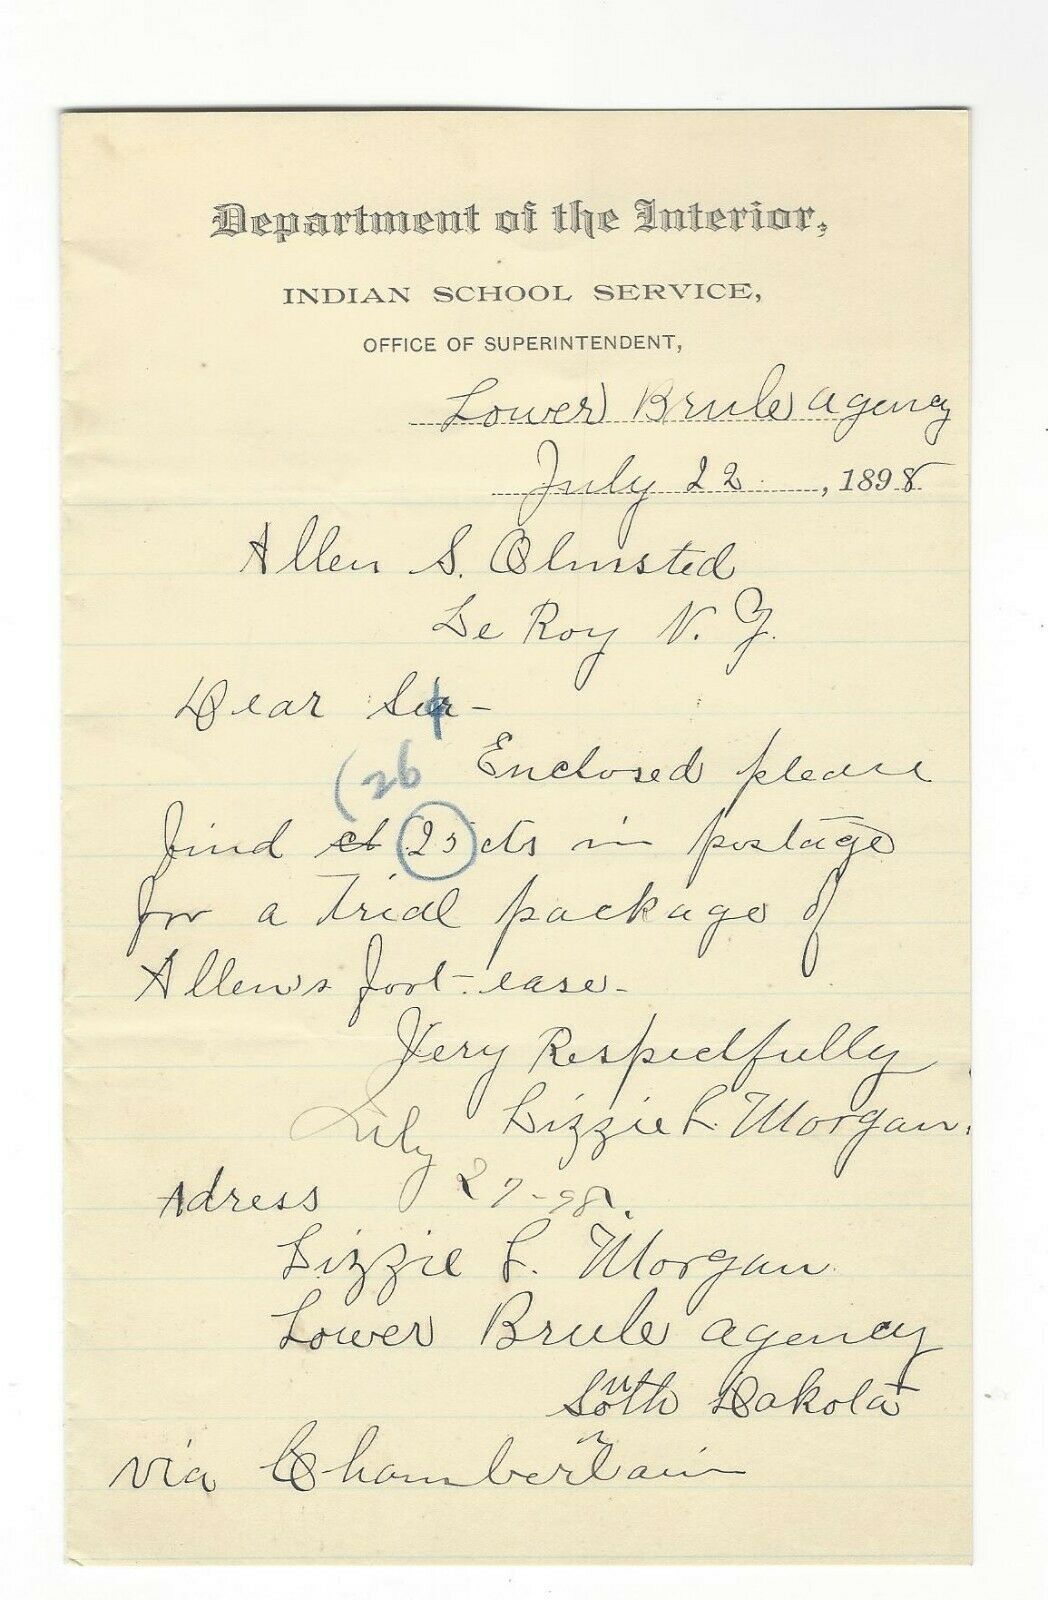 Department of the Interior,
INDIAN SCHOOL SERVICE,
OFFICE OF SUPERINTENDENT,
Lower Brule Agency
July 22, 1898
Allen S. Olmsted
Le Roy N. Y.
Dear Sir-
(26
Enclosed please
find ct 25 cts in postage
for a Trial package of
Allen's foot-ease-
Very Respectfully
Lizzie L. Morgan.
July 27-98.
Adress
Lizzie L. Morgan
Lower Brule Agency
South Dakota
via Chamberlain